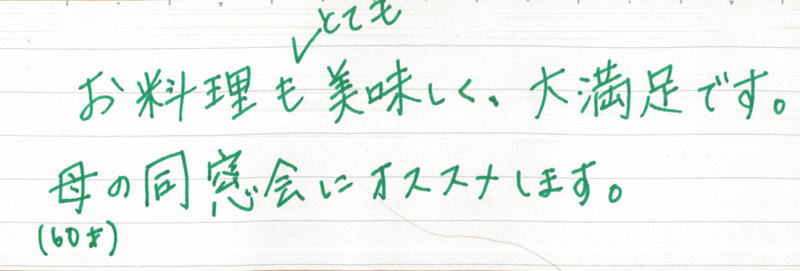 とても
お料理も美味しく、大満足です。
母の同窓会にオススメします。
(60才)